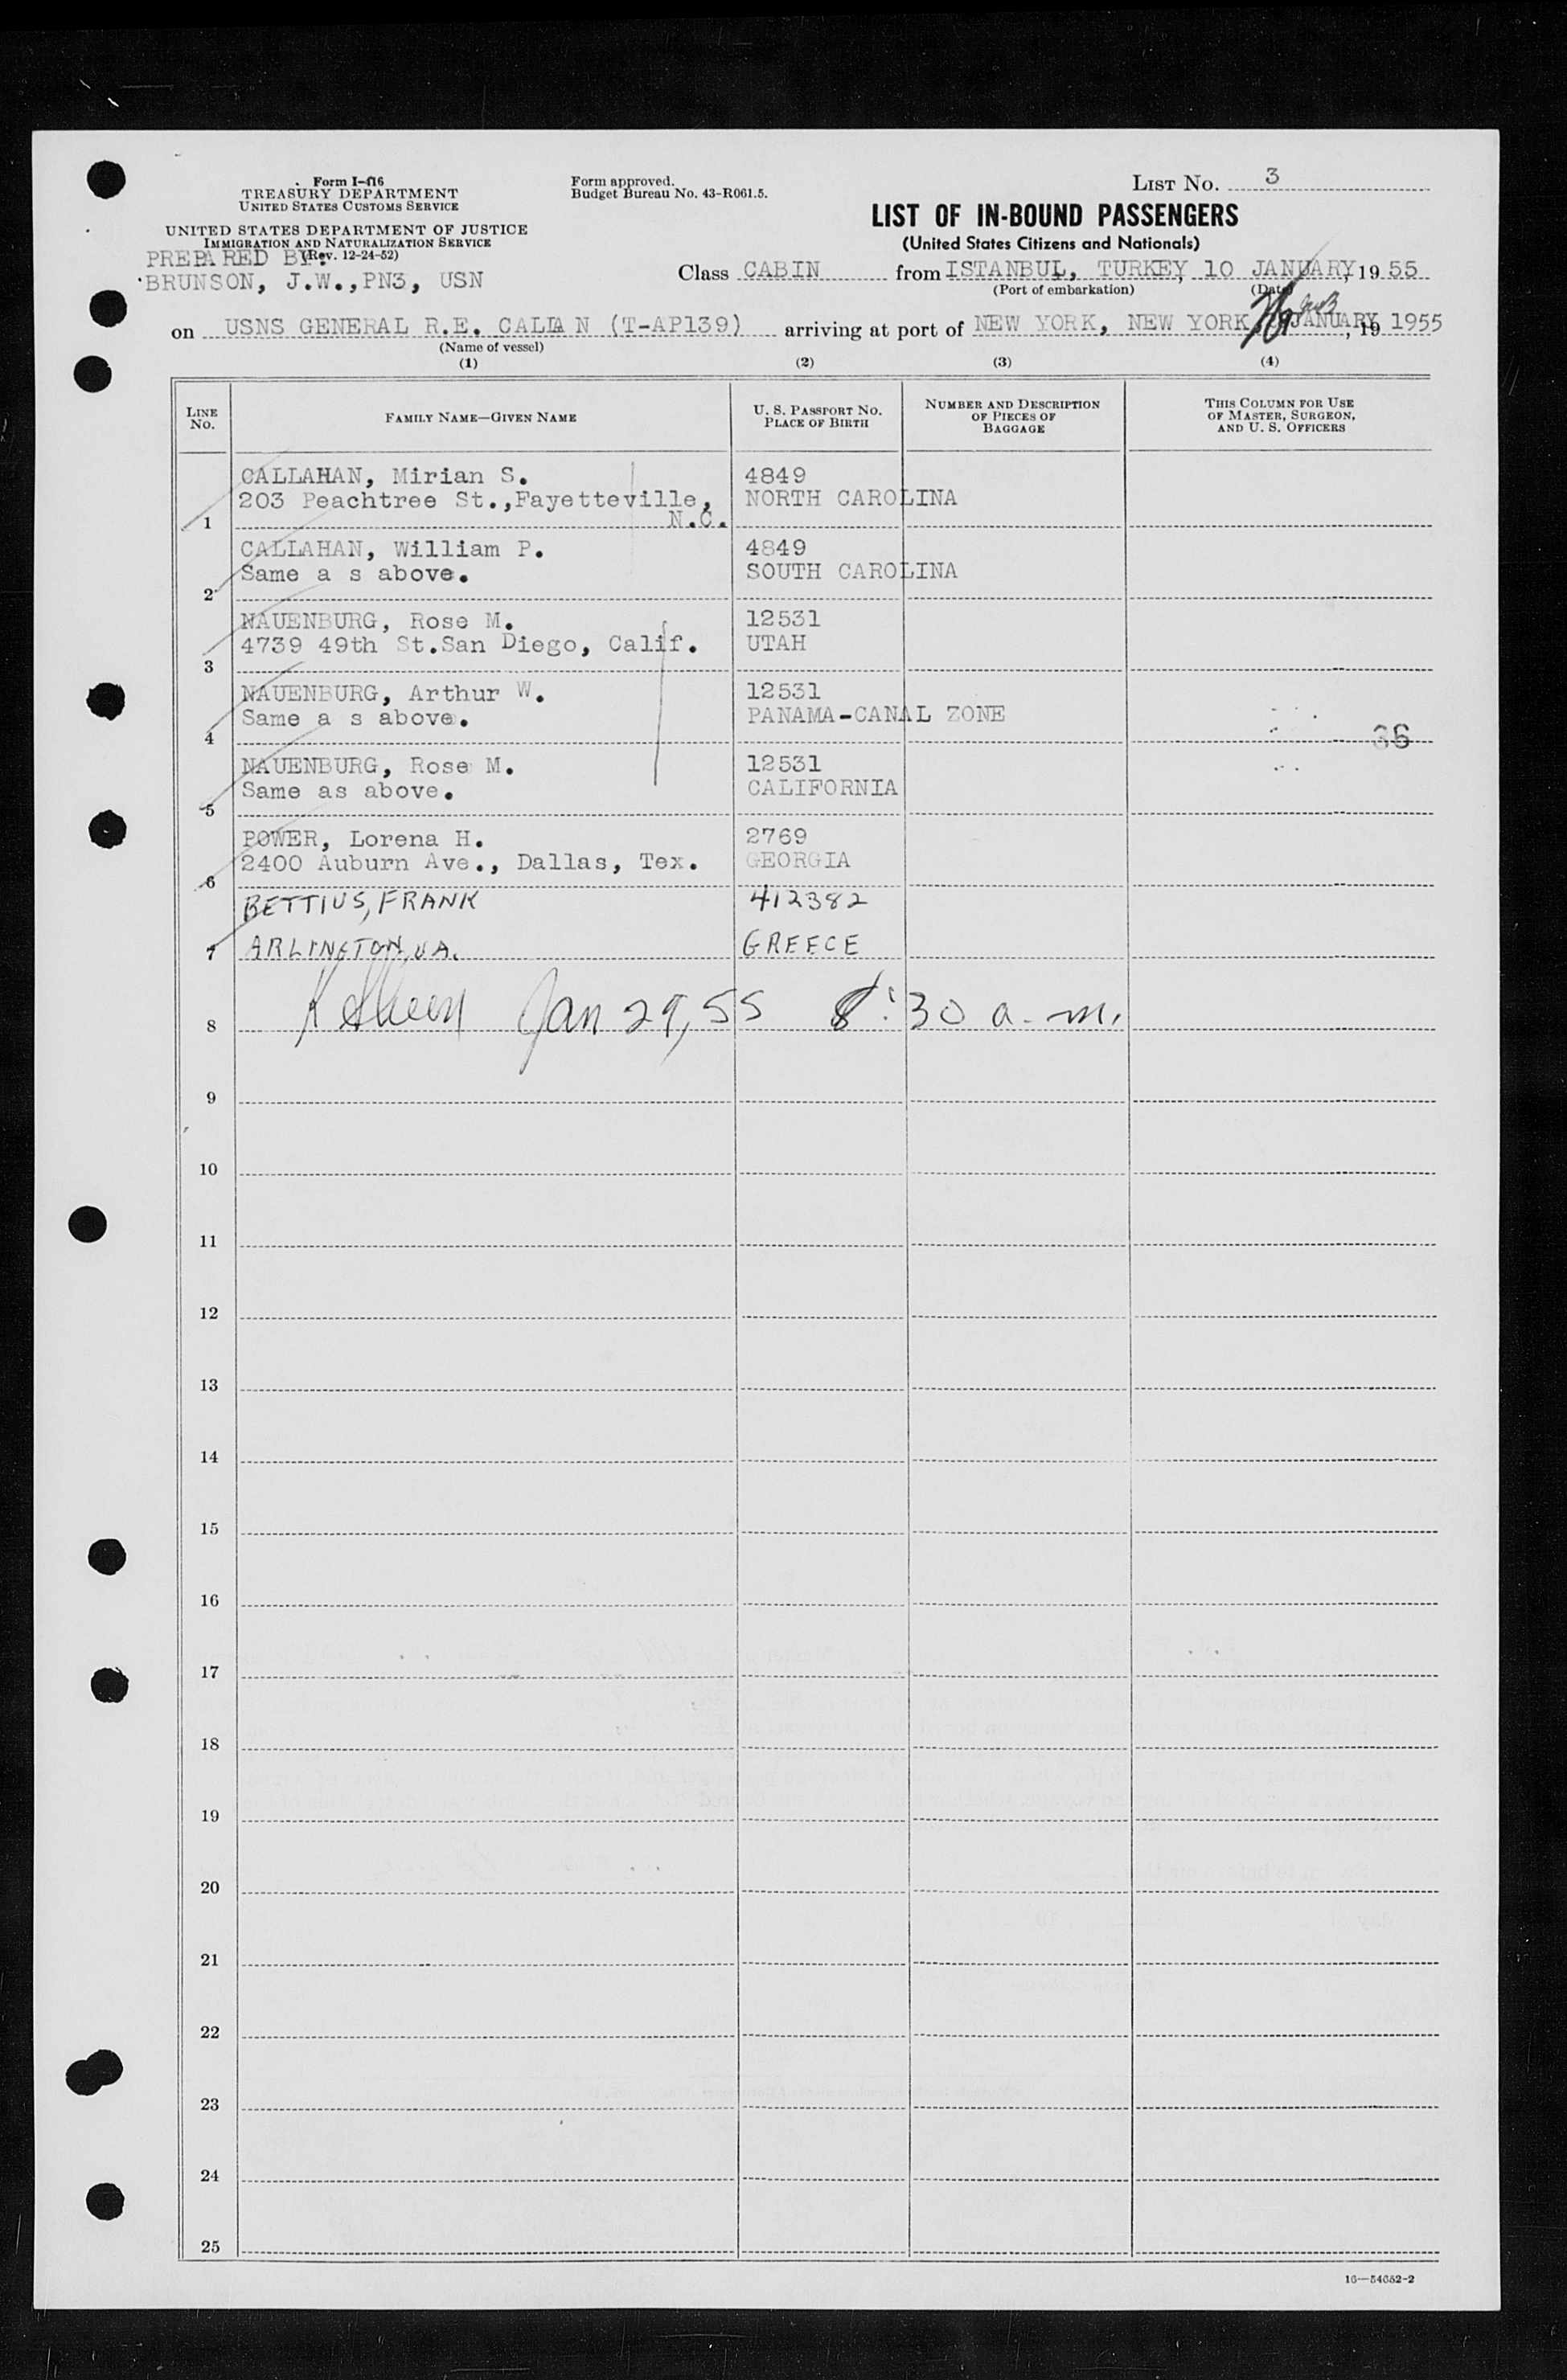 Form I-416
TREASURY DEPARTMENT
UNITED STATES CUSTOMS SERVICE
UNITED STATES DEPARTMENT OF JUSTICE
IMMIGRATION AND NATURALIZATION SERVICE
(Rev. 12-24-52)
PREPARED BY:
BRUNSON, J.W.,PN3, USN
Form approved.
Budget Bureau No. 43-R061.5.
LIST NO. 3
LIST OF IN-BOUND PASSENGERS
(United States Citizens and Nationals)
Class CABIN from ISTANBUL, TURKEY, 10 JANUARY, 1955
(Port of embarkation) (Date)
on USNS GENERAL R.E. CALLAN (T-AP139) arriving at port of NEW YORK, NEW YORK JANUARY, 19 1955
(Name of vessel)
(1) (2) (3) (4)
LINE NO. FAMILY NAME—GIVEN NAME U. S. PASSPORT NO. PLACE OF BIRTH NUMBER AND DESCRIPTION OF PIECES OF BAGGAGE THIS COLUMN FOR USE OF MASTER, SURGEON, AND U. S. OFFICERS
CALLAHAN, Mirian S. 4849
203 Peachtree St.,Fayetteville, NORTH CAROLINA
1 N.C.
CALLAHAN, William P. 4849
Same a s above. SOUTH CAROLINA
2
NAUENBURG, Rose M. 12531
4739 49th St.San Diego, Calif. UTAH
3
NAUENBURG, Arthur W. 12531
Same a s above. PANAMA-CANAL ZONE
4 36
NAUENBURG, Rose M. 12531
Same as above. CALIFORNIA
5
POWER, Lorena H. 2769
2400 Auburn Ave., Dallas, Tex. GEORGIA
6
BETTIUS, FRANK 412382
7 ARLINGTON, VA. GREECE
8 Jan 29, 55 8:30 a.m.
9
10
11
12
13
14
15
16
17
18
19
20
21
22
23
24
25
16—54652-2